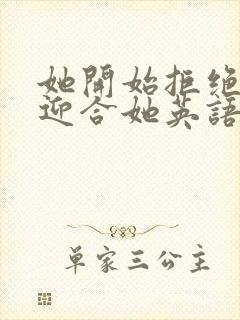 她開始拒绝
迎合她英語
单家三公主